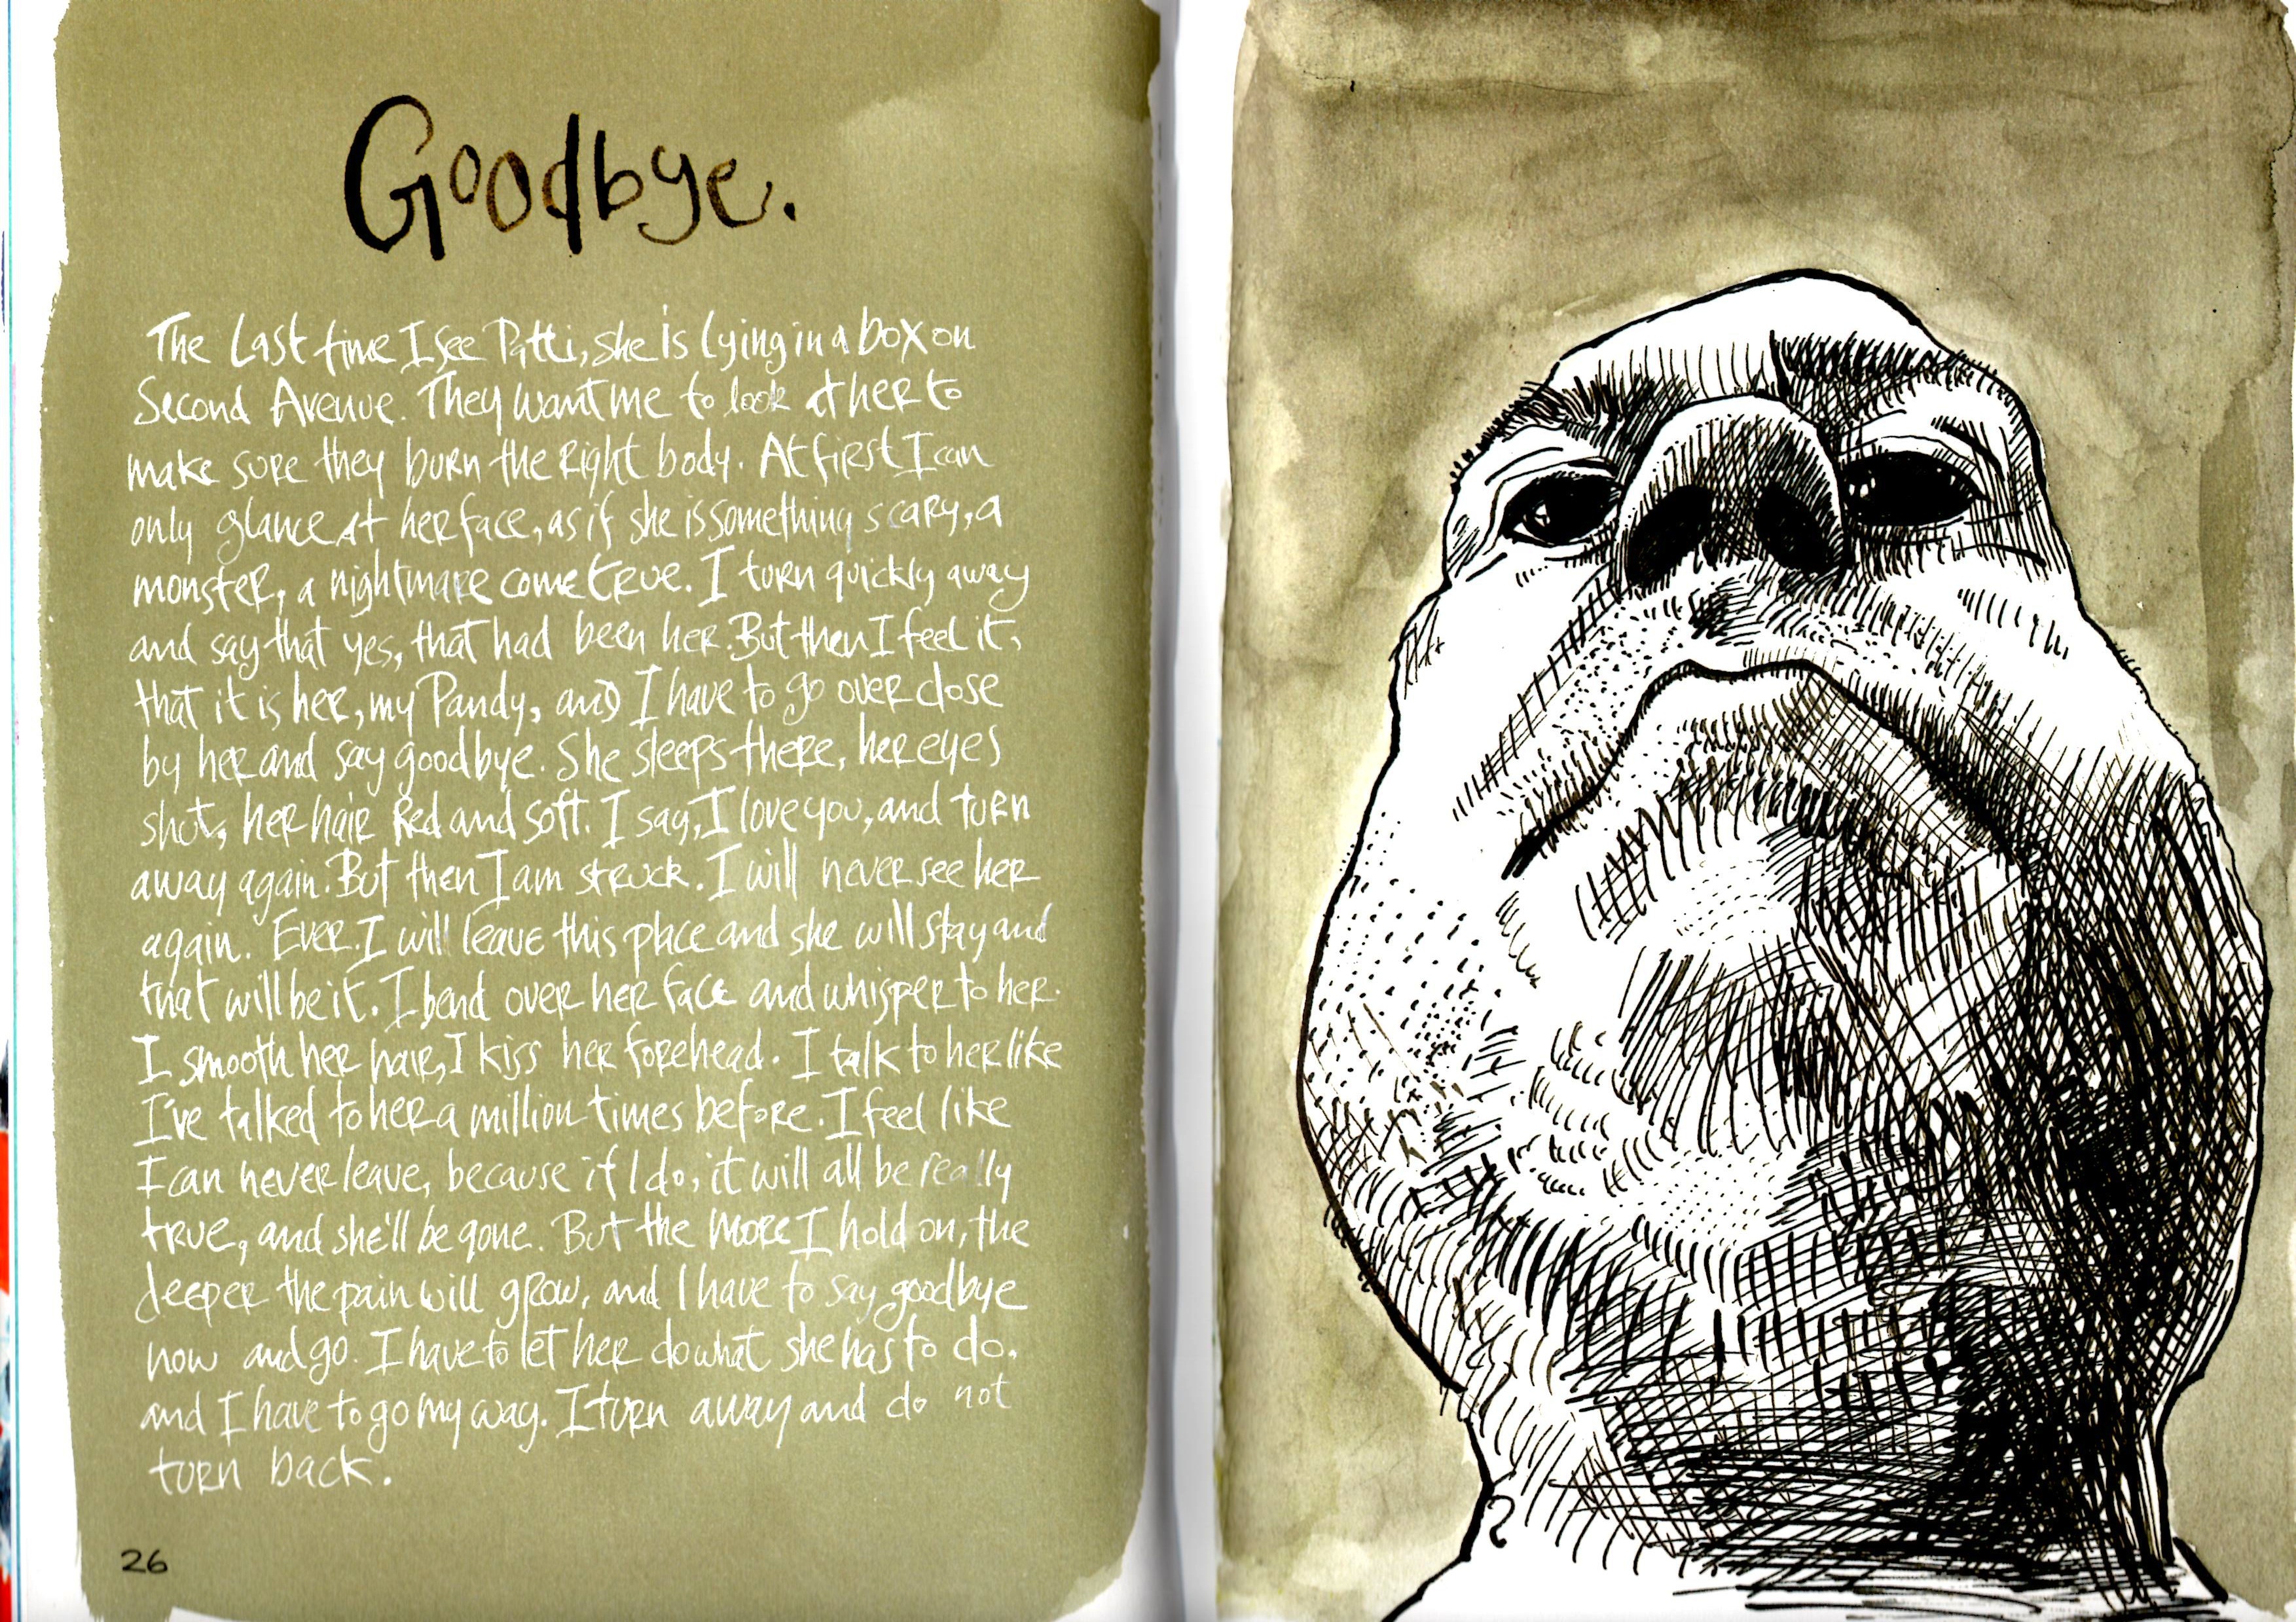 Goodbye.
The Last time I see Patti, she is lying in a box on
Second Avenue. They want me to look at her to
make sure they burn the right body. At first I can
only glance at her face, as if she is something scary, a
monster, a nightmare come true. I turn quickly away
and say that yes, that had been her. But then I feel it,
that it is her, my Pandy, and I have to go over close
by her and say goodbye. She sleeps there, her eyes
shut, her hair red and soft. I say, I love you, and turn
away again. But then I am struck. I will never see her
again. Ever. I will leave this place and she will stay and
that will be it. I bend over her face and whisper to her.
I smooth her hair, I kiss her forehead. I talk to her like
I've talked to her a million times before. I feel like
I can never leave, because if I do, it will all be really
true, and she'll be gone. But the more I hold on, the
deeper the pain will grow, and I have to say goodbye
now and go. I have to let her do what she has to do.
and I have to go my way. I turn away and do not
turn back.
26